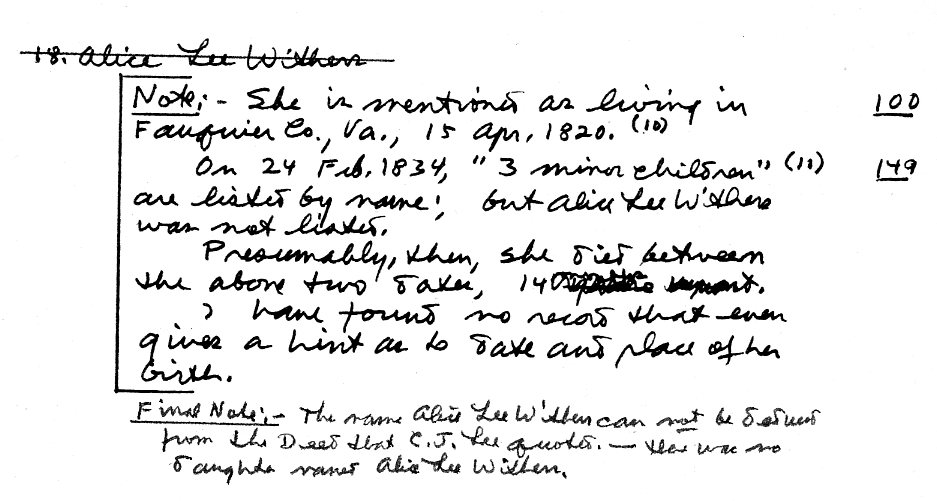 18. Alice Lee Withers
Note:- She is mentioned as living in 100
Fauquier Co., Va., 15 Apr. 1820. (10)
On 24 Feb. 1834, "3 minor children" (11) 149
are listed by name; but Alice Lee Withers
was not listed.
Presumably, then, she died between
the above two dates, 14 apart.
I have found no record that even
gives a hint as to date and place of her
birth.
Final Note:- The name Alice Lee Withers can not be deduced
from the Deed that C.J. Lee quotes. — there was no
daughter named Alice Lee Withers.